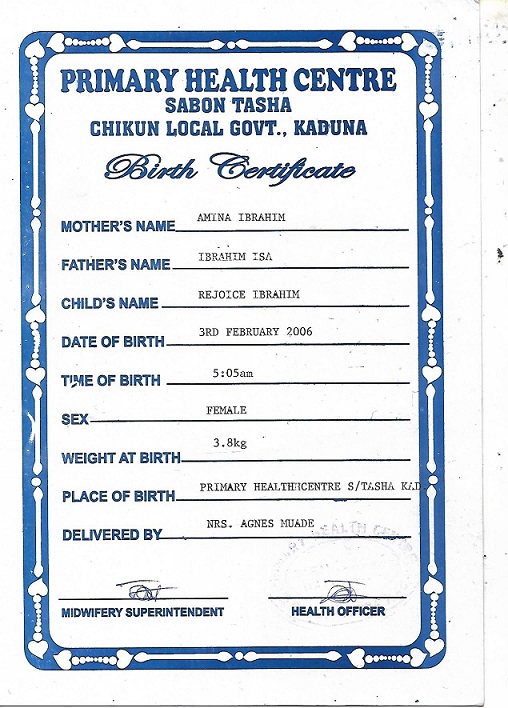 PRIMARY HEALTH CENTRE
SABON TASHA
CHIKUN LOCAL GOVT., KADUNA
Birth Certificate
MOTHER'S NAME AMINA IBRAHIM
FATHER'S NAME IBRAHIM ISA
CHILD'S NAME REJOICE IBRAHIM
DATE OF BIRTH 3RD FEBRUARY 2006
TIME OF BIRTH 5:05am
SEX FEMALE
WEIGHT AT BIRTH 3.8kg
PLACE OF BIRTH PRIMARY HEALTH CENTRE S/TASHA KAD
DELIVERED BY NRS. AGNES MUADE
HEALTH
MIDWIFERY SUPERINTENDENT HEALTH OFFICER